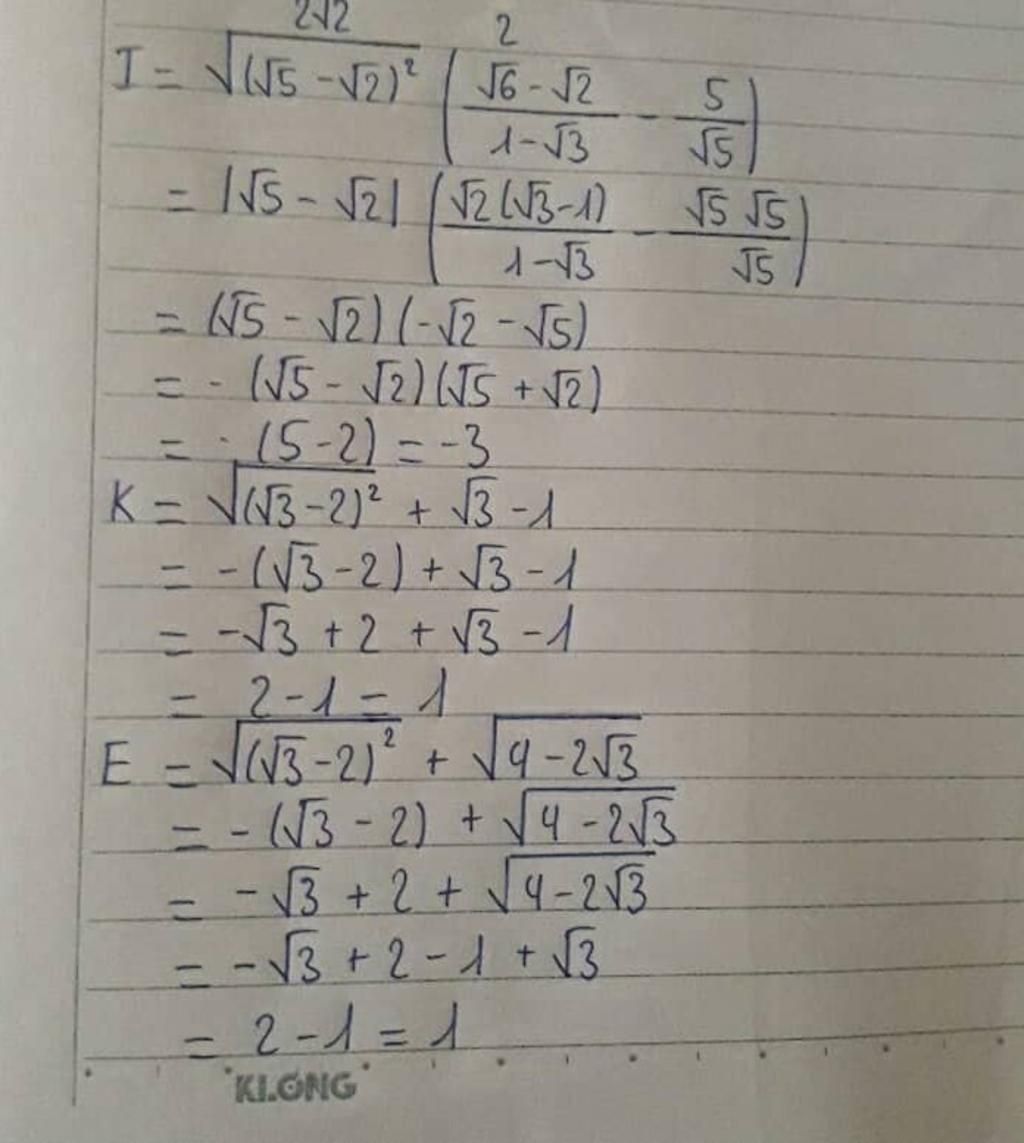 2√2 2
I = √(√5 - √2)² ( (√6 - √2)/(1 - √3) - 5/√5 )
= |√5 - √2| ( √2(√3-1)/(1-√3) - √5 √5/√5 )
= (√5 - √2)(-√2 - √5)
= - (√5 - √2)(√5 + √2)
= - (5-2) = -3
K = √(√3-2)² + √3 - 1
= -(√3-2) + √3 - 1
= -√3 + 2 + √3 - 1
= 2 - 1 = 1
E = √(√3-2)² + √(4-2√3)
= - (√3 - 2) + √(4-2√3)
= -√3 + 2 + √(4-2√3)
= -√3 + 2 - 1 + √3
= 2 - 1 = 1
KLONG